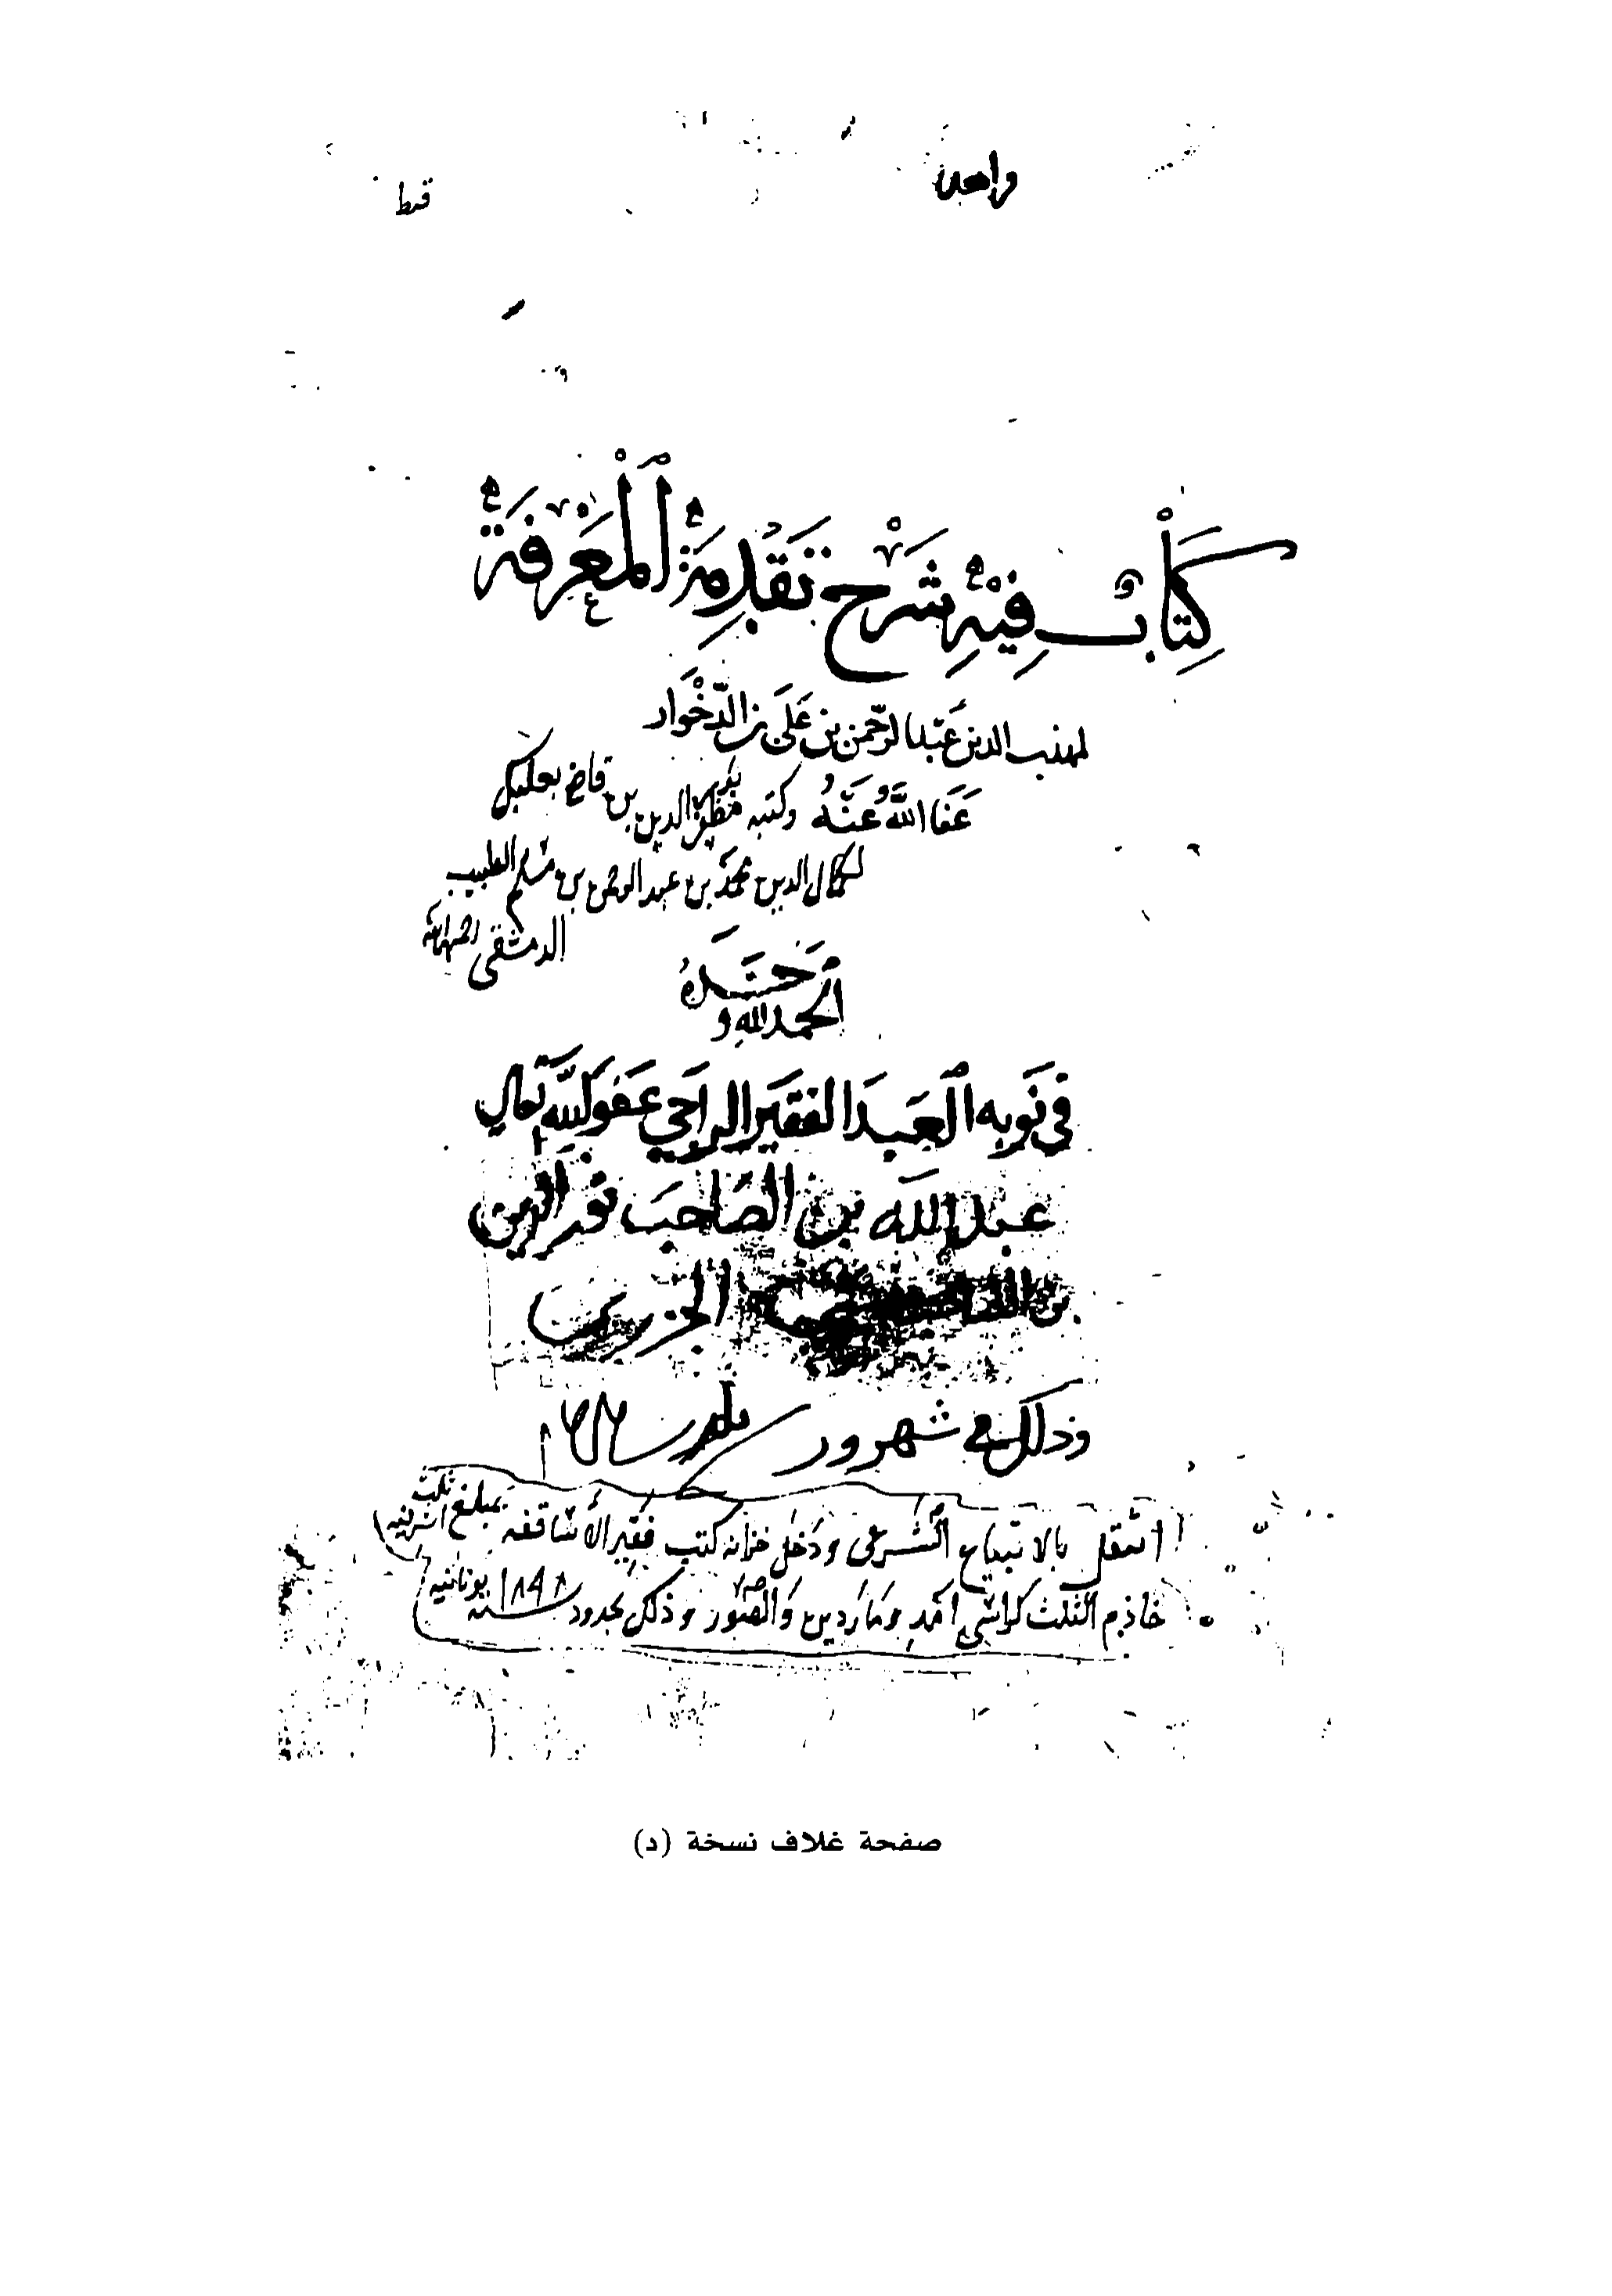 واحد
قط
كِتَابٌ فِيْهِ شَرْح تَقْدِمَةِ ٱلْمَعْرِفَةِ
لمهذب الدين عَبْد الرَّحمن بن عَلَي بن الدَّخْوَار
عَفَا اللَّهُ عَنْهُ وكتبه بدر مظفر الدين بن قاضي بعلبك
لكمال الدين محمد بن عبد الرحمن بن مسلم الطبيب
الدمشقي
الحمد لله وحده
في نَوبه العَبد الفقير الراجي عَفو الله تعالى
عبد الله بن الصاحب
بن الجزري
وذلك في شهور سنة
انتقل بالابتياع الشرعي ودخل خزانة كتب فقير الأساقفه بمبلغ ثلث
خادم الثلث كراسي امد وماردين والصور وذلك بحدود سنه ١٨٤٨ يونانيه
صفحة غلاف نسخة (د)